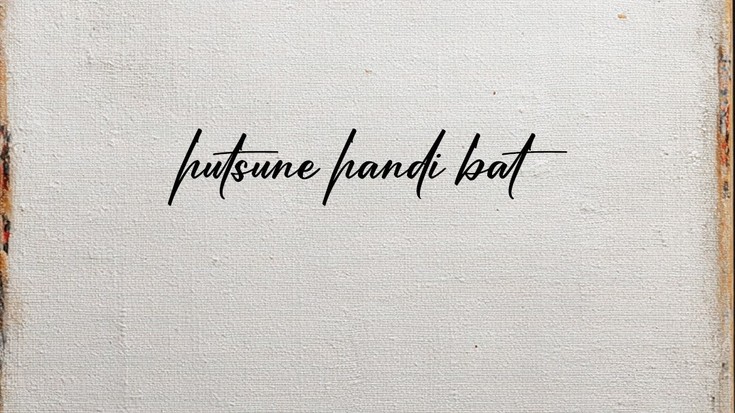 hutsune handi bat